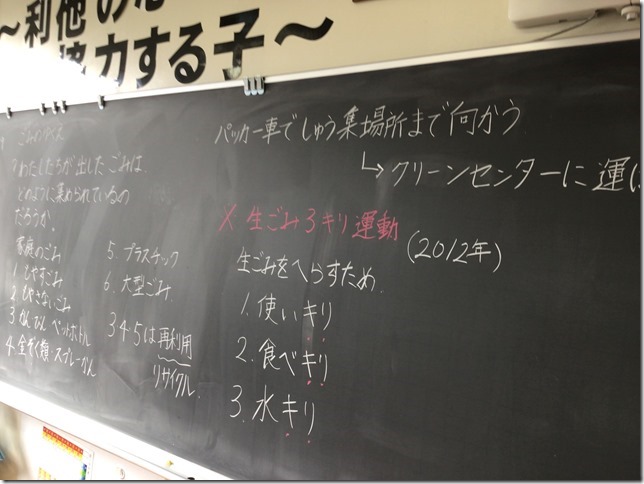 ～利他の心
協力する子～
ごみのゆくえ
わたしたちが出したごみは、
どのように集められているの
だろうか。
家庭のごみ
1. もやすごみ
2. もやさないごみ
3. かん びん ペットボトル
4. 金ぞく類 スプレーかん
5. プラスチック
6. 大型ごみ
3 4・5は再利用
リサイクル
パッカー車でしゅう集場所まで向かう
↳クリーンセンターに運
※生ごみ3キリ運動
(2012年)
生ごみをへらすため
1. 使いキリ
2. 食べキリ
3. 水キリ